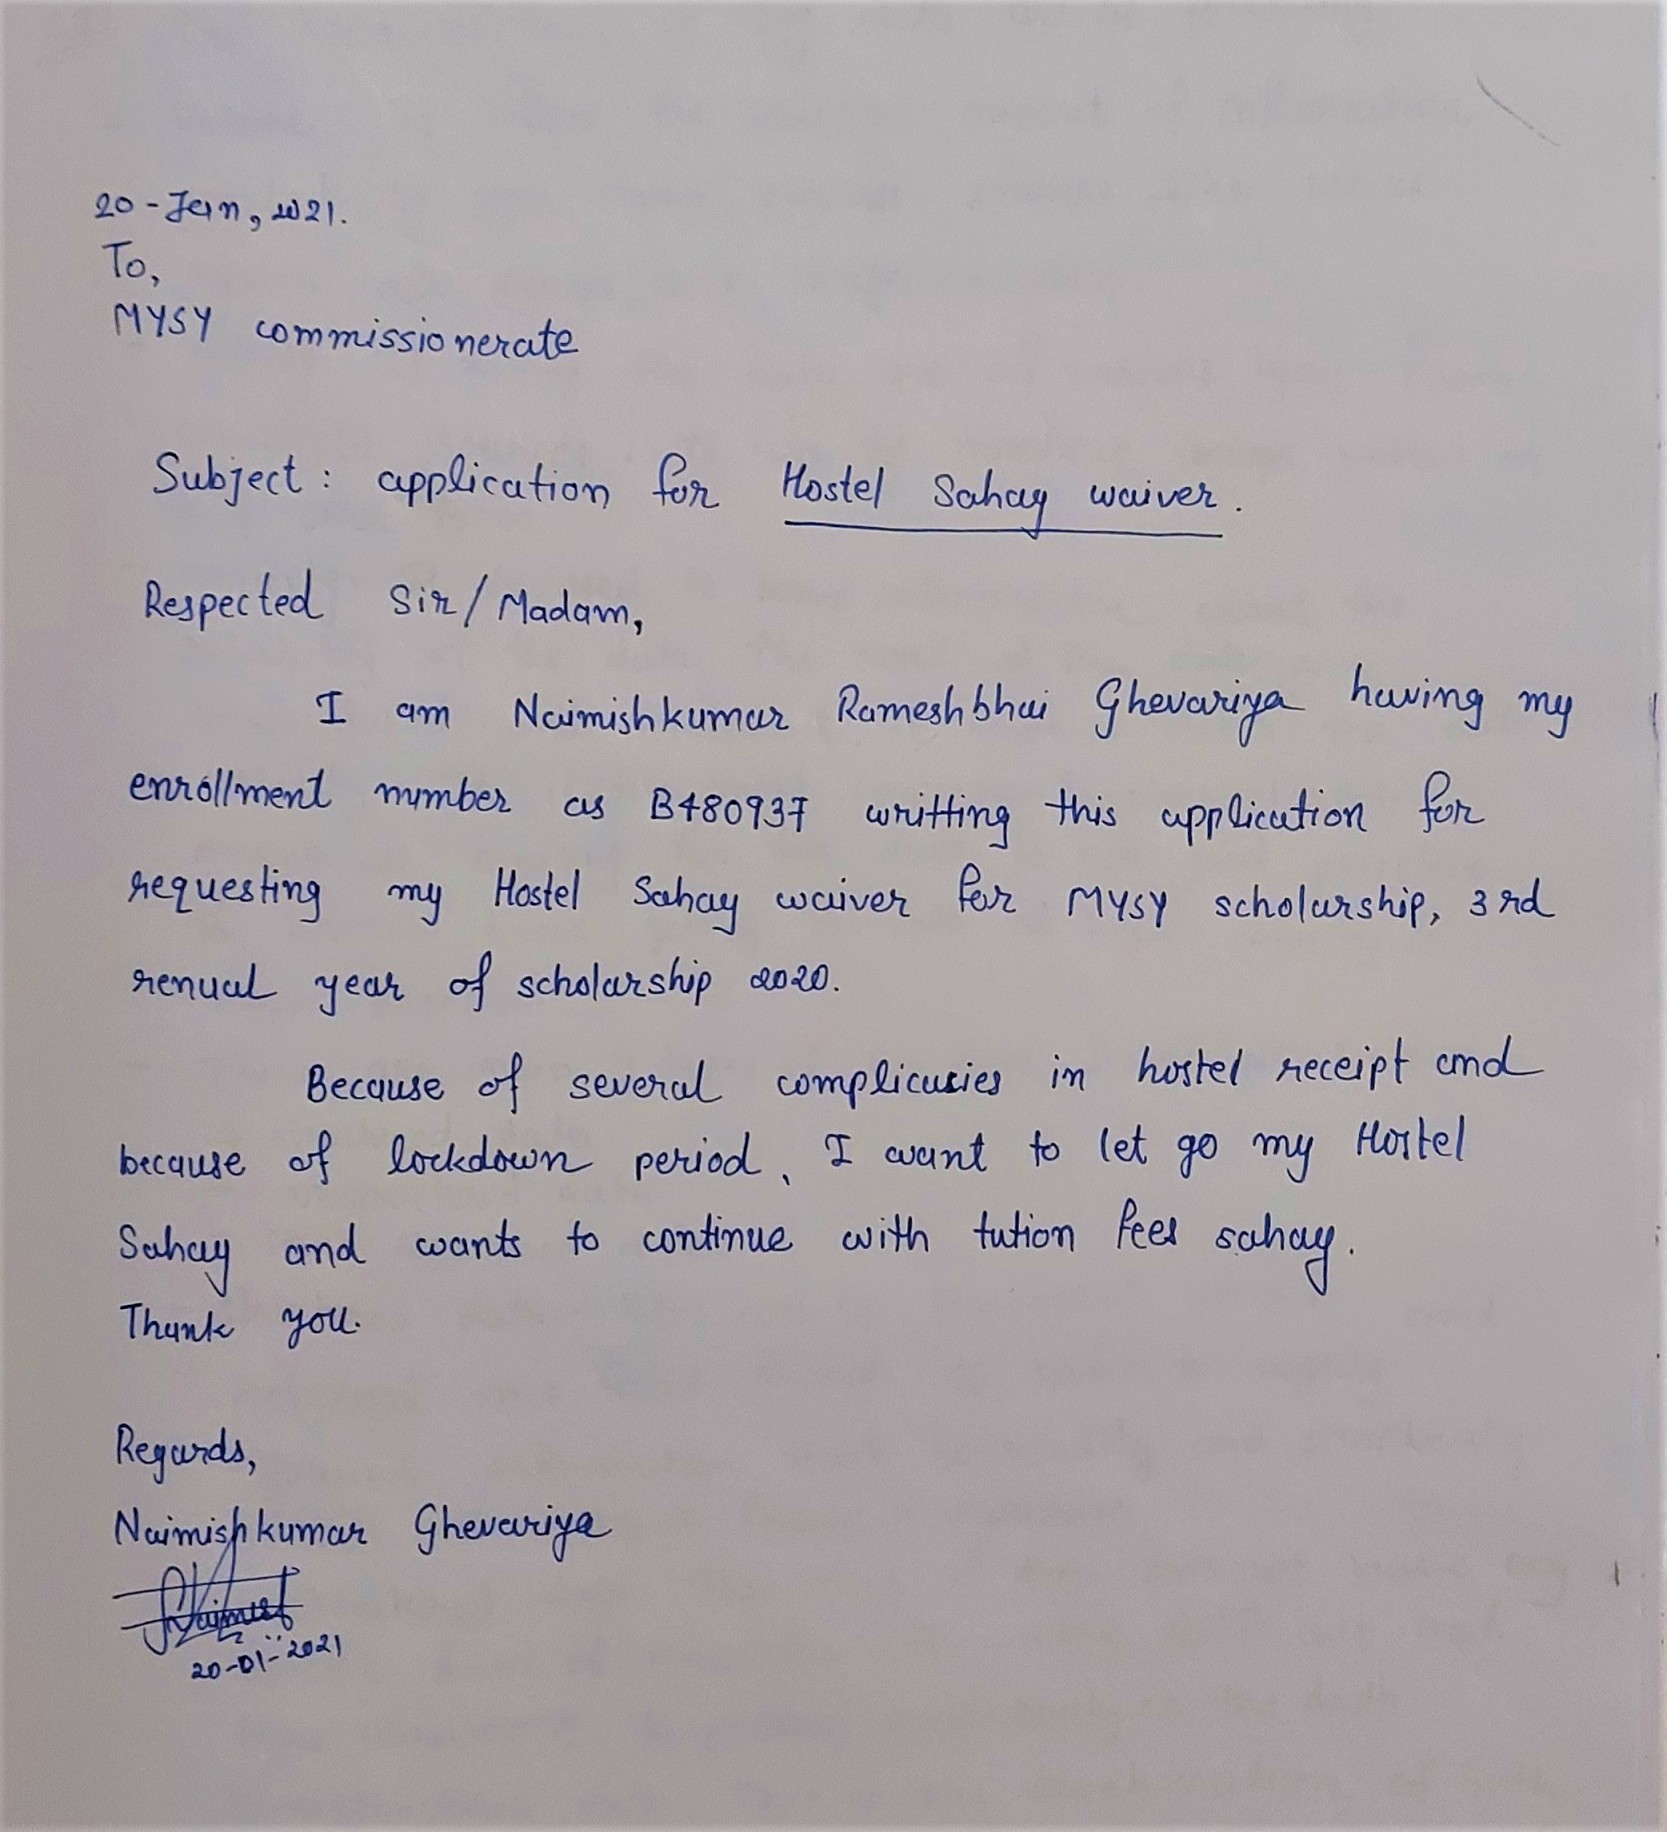 20-Jan, 2021.
To,
MYSY commissionerate
Subject : application for Hostel Sahay waiver.
Respected Sir/Madam,
I am Naimishkumar Rameshbhai Ghevariya having my
enrollment number as B480937 writting this application for
requesting my Hostel Sahay waiver for MYSY scholarship, 3rd
renual year of scholarship 2020.
Because of several complicasies in hostel receipt and
because of lockdown period, I want to let go my Hostel
Sahay and wants to continue with tution fees sahay.
Thank you.
Regards,
Naimishkumar Ghevariya
20-01-2021